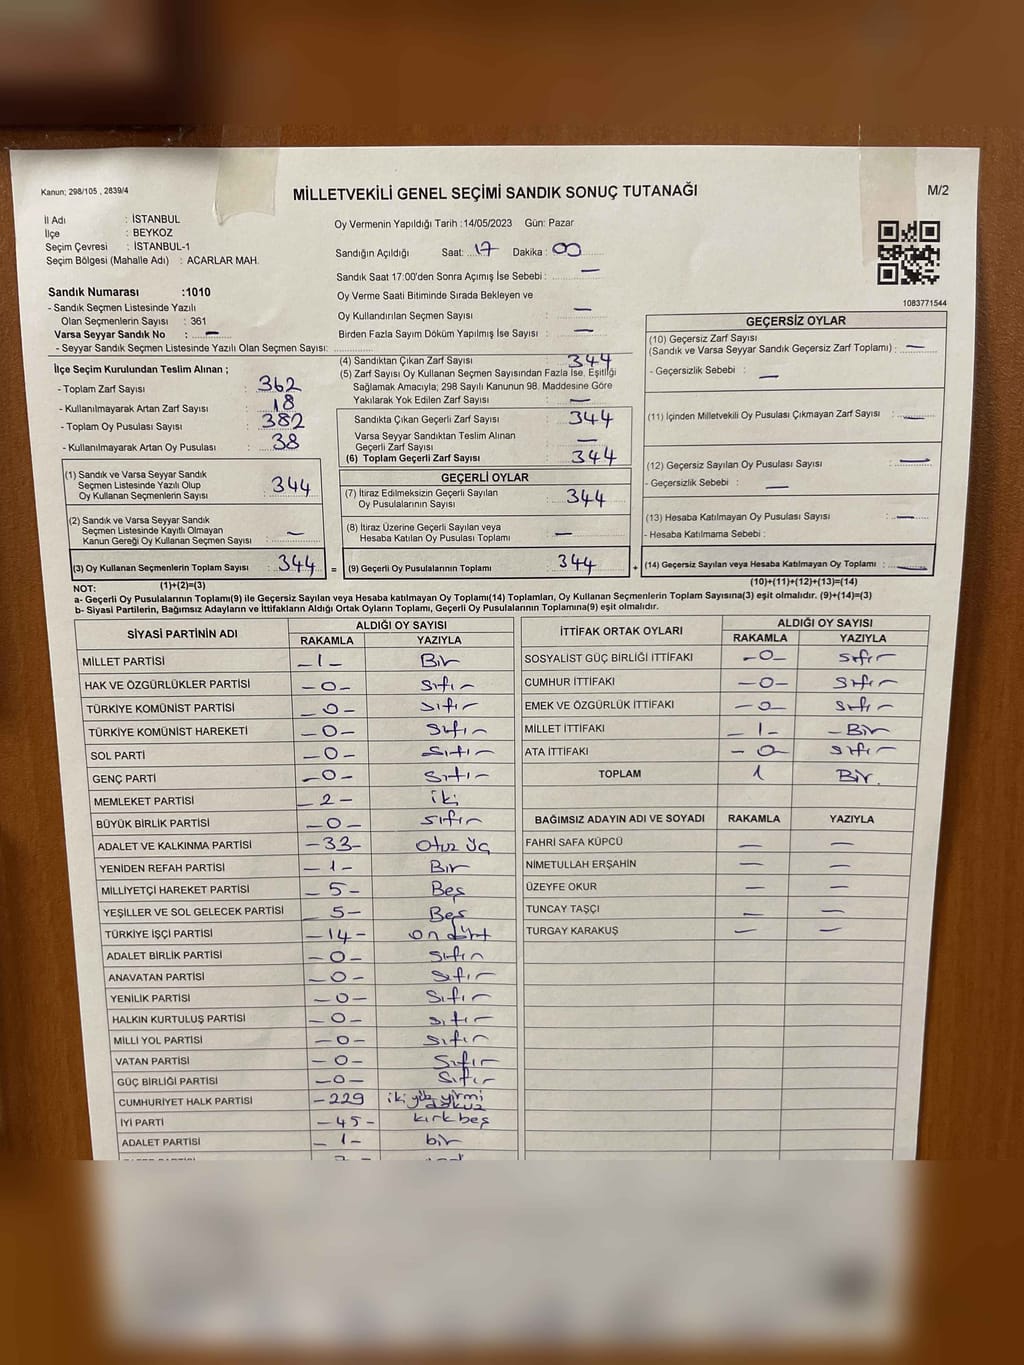 Kanun; 298/105 , 2839/4
MİLLETVEKİLİ GENEL SEÇİMİ SANDIK SONUÇ TUTANAĞI
M/2
İl Adı : İSTANBUL
İlçe : BEYKOZ
Seçim Çevresi : İSTANBUL-1
Seçim Bölgesi (Mahalle Adı) : ACARLAR MAH.
Oy Vermenin Yapıldığı Tarih :14/05/2023 Gün: Pazar
Sandığın Açıldığı Saat: 17 Dakika : 00
Sandık Saat 17:00'den Sonra Açımış İse Sebebi : —
Oy Verme Saati Bitiminde Sırada Bekleyen ve
Oy Kullandırılan Seçmen Sayısı : —
Birden Fazla Sayım Döküm Yapılmış İse Sayısı : —
1083771544
Sandık Numarası :1010
- Sandık Seçmen Listesinde Yazılı
Olan Seçmenlerin Sayısı : 361
Varsa Seyyar Sandık No : —
- Seyyar Sandık Seçmen Listesinde Yazılı Olan Seçmen Sayısı:
İlçe Seçim Kurulundan Teslim Alınan ;
- Toplam Zarf Sayısı : 362
- Kullanılmayarak Artan Zarf Sayısı : 18
- Toplam Oy Pusulası Sayısı : 382
- Kullanılmayarak Artan Oy Pusulası : 38
(1) Sandık ve Varsa Seyyar Sandık
Seçmen Listesinde Yazılı Olup
Oy Kullanan Seçmenlerin Sayısı : 344
(2) Sandık ve Varsa Seyyar Sandık
Seçmen Listesinde Kayıtlı Olmayan
Kanun Gereği Oy Kullanan Seçmen Sayısı : —
(3) Oy Kullanan Seçmenlerin Toplam Sayısı : 344
(1)+(2)=(3)
(4) Sandıktan Çıkan Zarf Sayısı : 344
(5) Zarf Sayısı Oy Kullanan Seçmen Sayısından Fazla İse, Eşitliği
Sağlamak Amacıyla; 298 Sayılı Kanunun 98. Maddesine Göre
Yakılarak Yok Edilen Zarf Sayısı : —
Sandıkta Çıkan Geçerli Zarf Sayısı : 344
Varsa Seyyar Sandıktan Teslim Alınan
Geçerli Zarf Sayısı : —
(6) Toplam Geçerli Zarf Sayısı : 344
GEÇERLİ OYLAR
(7) İtiraz Edilmeksizin Geçerli Sayılan
Oy Pusulalarının Sayısı : 344
(8) İtiraz Üzerine Geçerli Sayılan veya
Hesaba Katılan Oy Pusulası Toplamı : —
= (9) Geçerli Oy Pusulalarının Toplamı : 344 +
GEÇERSİZ OYLAR
(10) Geçersiz Zarf Sayısı
(Sandık ve Varsa Seyyar Sandık Geçersiz Zarf Toplamı) : —
- Geçersizlik Sebebi : —
(11) İçinden Milletvekili Oy Pusulası Çıkmayan Zarf Sayısı : —
(12) Geçersiz Sayılan Oy Pusulası Sayısı : —
- Geçersizlik Sebebi : —
(13) Hesaba Katılmayan Oy Pusulası Sayısı : —
- Hesaba Katılmama Sebebi :
(14) Geçersiz Sayılan veya Hesaba Katılmayan Oy Toplamı : —
(10)+(11)+(12)+(13)=(14)
NOT:
a- Geçerli Oy Pusulalarının Toplamı(9) ile Geçersiz Sayılan veya Hesaba katılmayan Oy Toplamı(14) Toplamları, Oy Kullanan Seçmenlerin Toplam Sayısına(3) eşit olmalıdır. (9)+(14)=(3)
b- Siyasi Partilerin, Bağımsız Adayların ve İttifakların Aldığı Ortak Oyların Toplamı, Geçerli Oy Pusulalarının Toplamına(9) eşit olmalıdır.
SİYASİ PARTİNİN ADI ALDIĞI OY SAYISI
RAKAMLA YAZIYLA
MİLLET PARTİSİ —1— Bir
HAK VE ÖZGÜRLÜKLER PARTİSİ —0— Sıfır
TÜRKİYE KOMÜNİST PARTİSİ —0— Sıfır
TÜRKİYE KOMÜNİST HAREKETİ —0— Sıfır
SOL PARTİ —0— Sıfır
GENÇ PARTİ —0— Sıfır
MEMLEKET PARTİSİ —2— iki
BÜYÜK BİRLİK PARTİSİ —0— Sıfır
ADALET VE KALKINMA PARTİSİ —33— Otuz üç
YENİDEN REFAH PARTİSİ —1— Bir
MİLLİYETÇİ HAREKET PARTİSİ —5— Beş
YEŞİLLER VE SOL GELECEK PARTİSİ —5— Beş
TÜRKİYE İŞÇİ PARTİSİ —14— on dört
ADALET BİRLİK PARTİSİ —0— Sıfır
ANAVATAN PARTİSİ —0— Sıfır
YENİLİK PARTİSİ —0— Sıfır
HALKIN KURTULUŞ PARTİSİ —0— Sıfır
MİLLİ YOL PARTİSİ —0— Sıfır
VATAN PARTİSİ —0— Sıfır
GÜÇ BİRLİĞİ PARTİSİ —0— Sıfır
CUMHURİYET HALK PARTİSİ —229 iki yüz yirmi dokuz
İYİ PARTİ —45— kırk beş
ADALET PARTİSİ —1— bir
İTTİFAK ORTAK OYLARI ALDIĞI OY SAYISI
RAKAMLA YAZIYLA
SOSYALİST GÜÇ BİRLİĞİ İTTİFAKI —0— Sıfır
CUMHUR İTTİFAKI —0— Sıfır
EMEK VE ÖZGÜRLÜK İTTİFAKI —0— Sıfır
MİLLET İTTİFAKI —1— —Bir
ATA İTTİFAKI —0— Sıfır
TOPLAM 1 Bir.
BAĞIMSIZ ADAYIN ADI VE SOYADI RAKAMLA YAZIYLA
FAHRİ SAFA KÜPCÜ — —
NİMETULLAH ERŞAHİN — —
ÜZEYFE OKUR — —
TUNCAY TAŞÇI — —
TURGAY KARAKUŞ — —